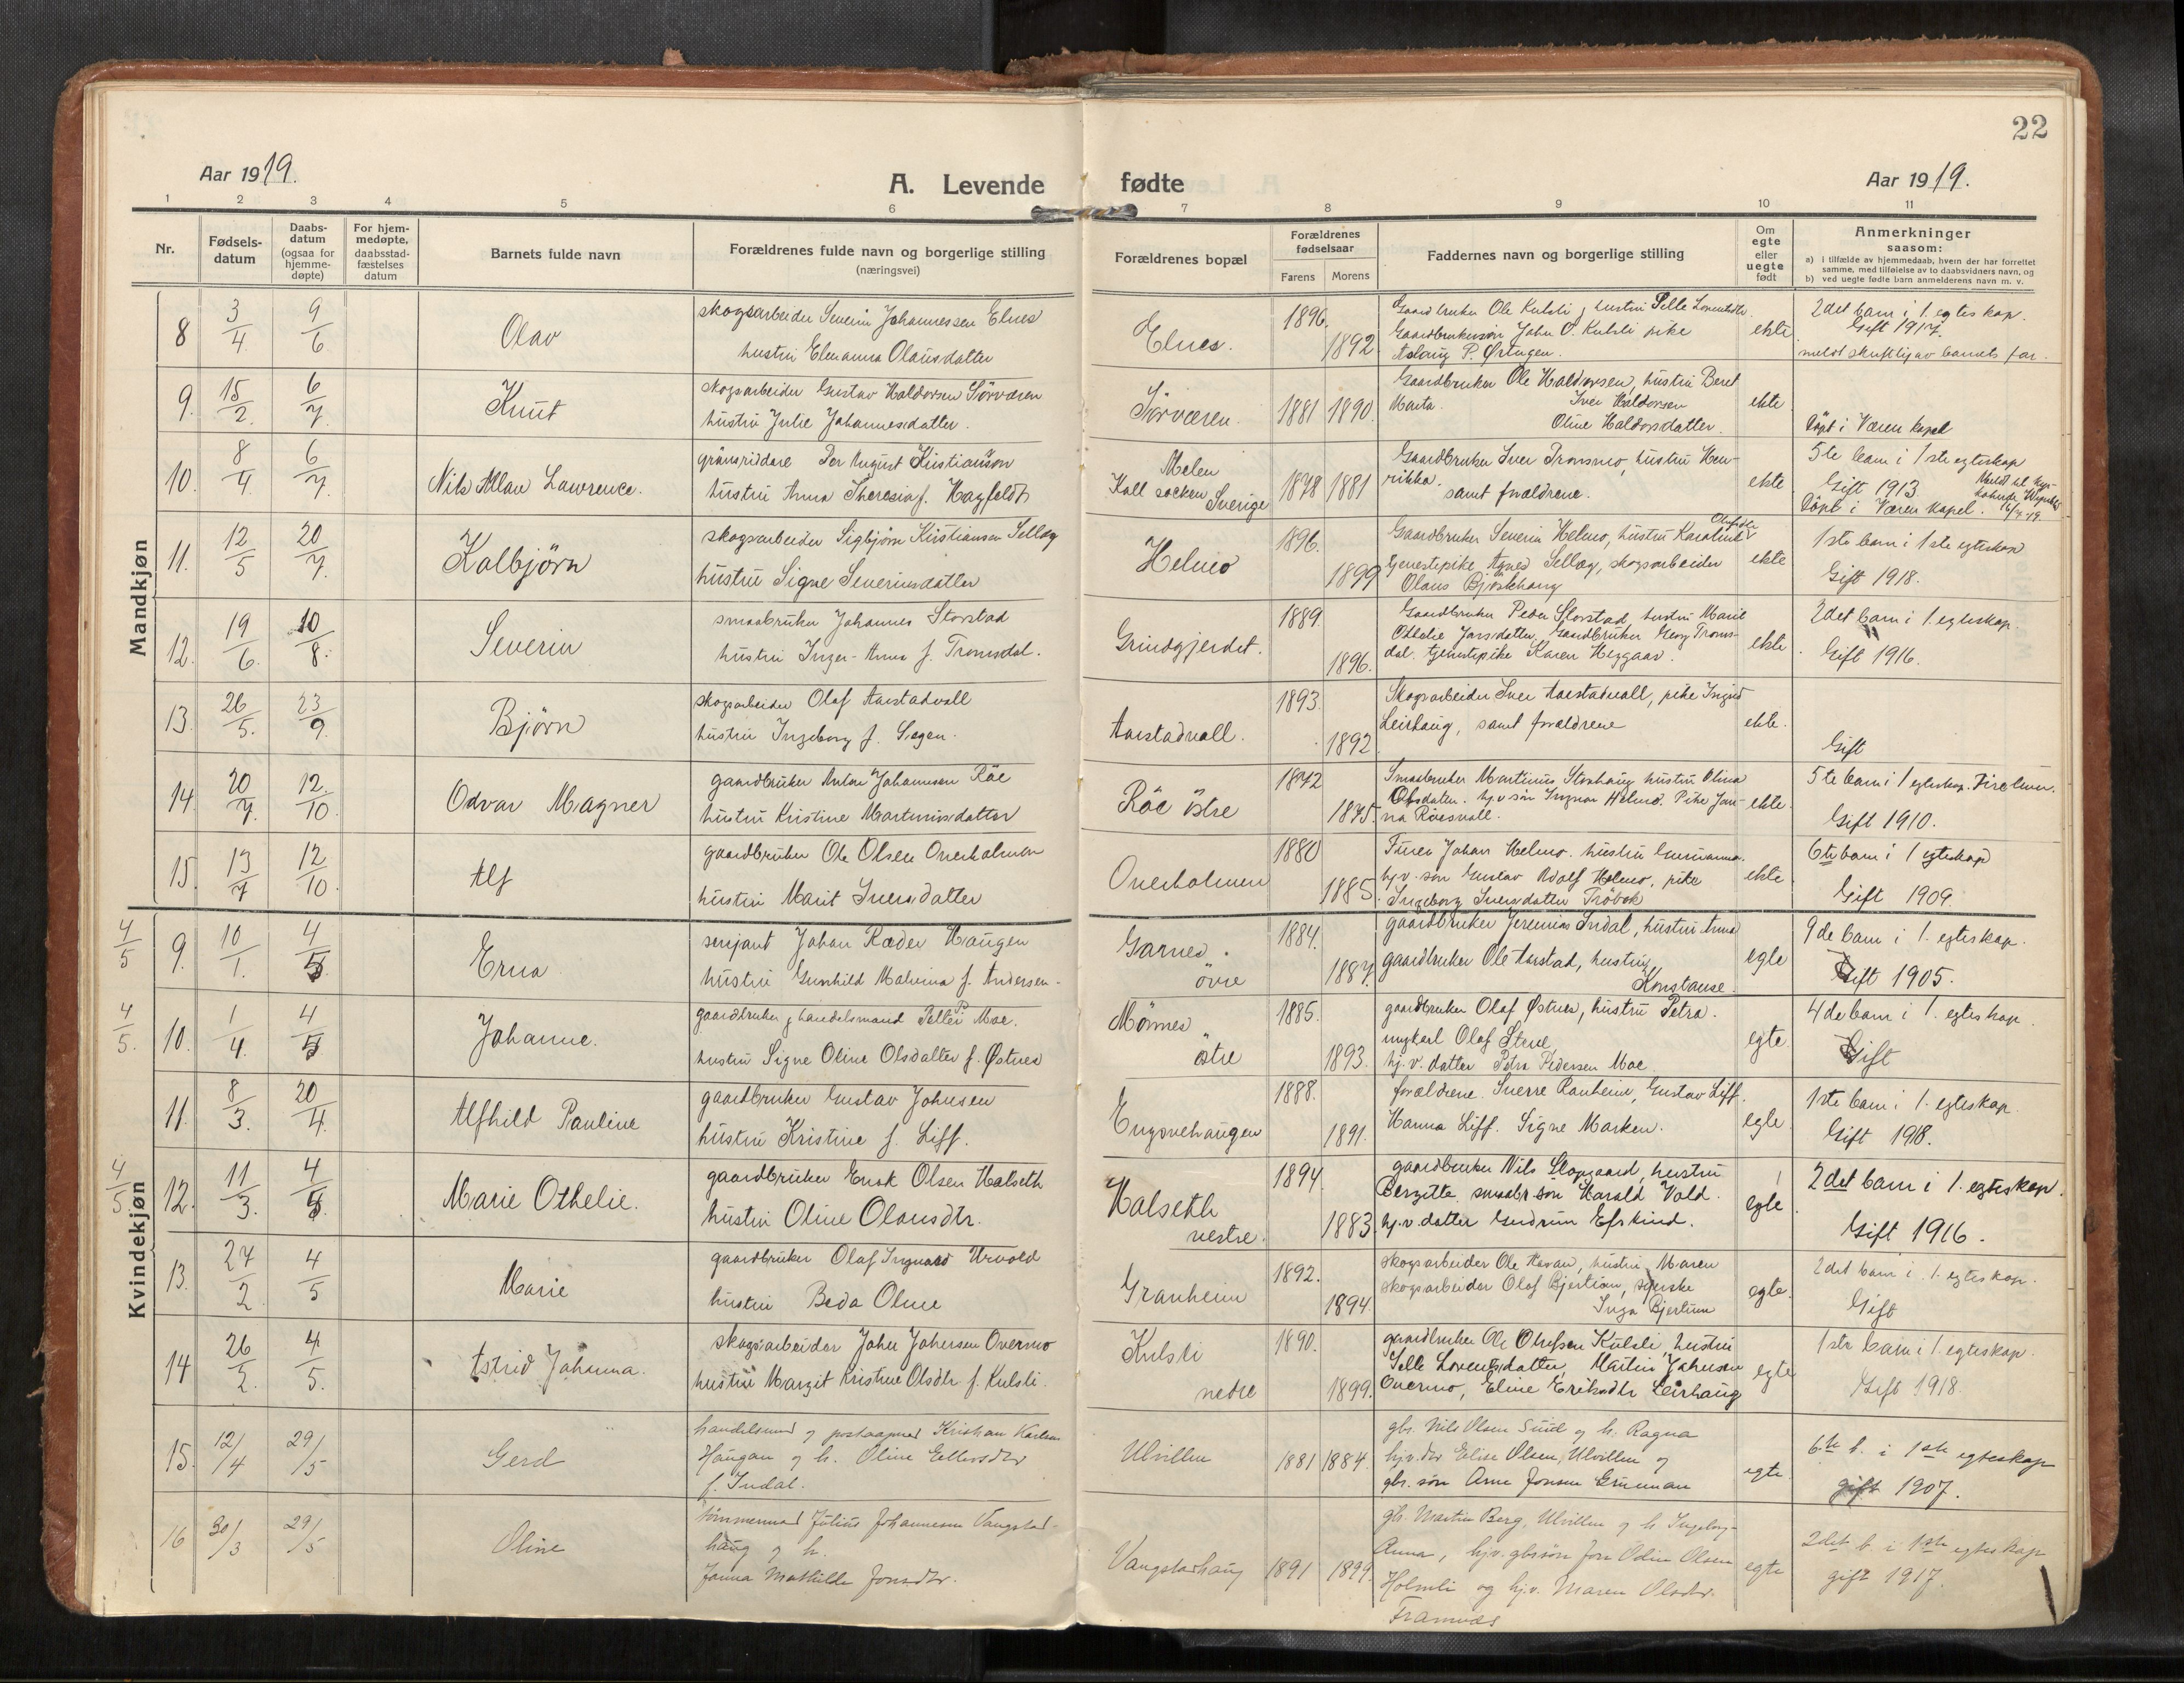 22
Aar 1919.
A. Levende fødte
Aar 1919.
1 2 3 4 5 6 7 8 9 10 11
Nr.
Fødsels-
datum
Daabs-
datum
(ogsaa for
hjemme-
døpte)
For hjem-
medøpte,
daabsstad-
fæstelses
datum
Barnets fulde navn
Forældrenes fulde navn og borgerlige stilling
(næringsvei)
Forældrenes bopæl
Forældrenes
fødselsaar
Farens Morens
Faddernes navn og borgerlige stilling
Om
egte
eller
uegte
født
Anmerkninger
saasom:
a) i tilfælde av hjemmedaab, hvem der har forrettet
samme, med tilføielse av to daabsvidners navn, og
b) ved uegte fødte barn anmelderens navn m. v.
Mandkjøn
8 3/4 9/6 Olav
skogsarbeider Severin Johannessen Elnes
hustru Elenanna Olausdatter
Elnes. 1896. 1892
Gaardbruker Ole Kulsli, hustru Pelle Lorentsdtr.
Gaardbrukersøn John O. Kulsli pike
Aslaug P. Østngen.
ekte
2det barn i 1. egteskap.
Gift 1917.
meldt skriftlig av barnets far.
9. 15/2 6/7 Knut
skogsarbeider Gustav Haldorsen Sörværen
hustru Julie Johannesdatter.
Sörværen. 1881 1890
Gaardbruker Ole Haldorsen, hustru Beret
Marta. Iver Haldorsen
Oline Haldorsdatter.
ekte
Döpt i Væren kapel
10. 8/4 6/7 Nils Allan Lawrence.
gränsriddare Per August Kristianson
hustru Anna Theresia f. Hagfeldt
Melen
Kall socken
Sverige
1878 1881
Gaardbruker Iver Tronsmo, hustru Hen-
rikka. samt forældrene.
ekte
5te barn i 1ste egteskap
Gift 1913
Döpt i Væren kapel.
11. 12/5 20/7 Kolbjörn
skogsarbeider Sigbjörn Kristiansen Selleg
hustru Signe Severinsdatter
Helmo 1896. 1899
Gaardbruker Severin Helmo, hustru Karoline Olufsdtr
tjenestepike Agnes Selleg, skogsarbeider
Olaus Bjöstehaug
ekte
1ste barn i 1ste egteskap
Gift 1918.
12. 19/6 10/8 Severin
smaabruker Johannes Storstad
hustru Inger-Anna f. Tromsdal.
Grindgjerdet. 1889. 1896.
Gaardbruker Peder Storstad, hustru Marie
Othelie Jarsdatter, Gaardbruker Georg Troms-
dal. tjenstepike Karen Heggaas.
ekte
2det barn i 1. egteskap.
Gift 1916.
13. 26/5. 23/9 Björn
skogsarbeider Olaf Aarstadvoll
hustru Ingeborg f. Segen.
Aarstadvoll. 1893. 1892
Skogsarbeider Iver Aarstadvoll, pike Ingrid
Leirhaug, samt forældrene
ekte.
Gift
14 20/7. 12./10 Odvar Magner
gaardbruker Anton Johannesen Röe
hustru Kristine Martinusdatter
Röe östre 1872 1875.
Smaabruker Martinus Storhaug hustru Olina
Olsdatter. hj.v sön Ingvar Helmo. Pike Jan-
na Röesvoll.
ekte.
5te barn i 1 egteskap.
Gift 1910.
15. 13/7 12/10 Alf
gaardbruker Ole Olsen Overholmen
hustru Marit Iversdatter
Overholmen 1880 1885
Furer Johan Helmo. hustru Gurianna.
hj.v. sön Gustav Adolf Helmo, pike
Ingeborg Iversdatter Tröbok
ekte
6te barn i 1 egteskap
Gift 1909.
Kvindekjøn
4/5 9. 10/1. 4/5 Erna
serjant Johan Ræder Haugen
hustru Gunhild Malvina f. Andersen.
Garnes övre 1884. 1887.
gaardbruker Jeremias Indal, hustru Anna
gaardbruker Ole Aarstad, hustru
Konstanse.
egte
9de barn i 1. egteskap.
Gift 1905.
4/5. 10. 1/4. 4/5 Johanne.
gaardbruker & handelsmand Petter P. Moe.
hustru Signe Oline Olsdatter f. Østnes
Mönnes östre 1885. 1893.
gaardbruker Olaf Østnes, hustru Petra.
ungkarl Olaf Strue,
hj.v. datter Petra Pedersen Moe
egte
4de barn i 1. egteskap.
Gift
11. 8/3. 20/4. Alfhild Pauline
gaardbruker Gustav Johnsen
hustru Kristine f. Liff.
Engsvehaugen 1888. 1891.
forældrene. Sverre Ranheim, Gustav Liff.
Hanna Liff. Signe Marken.
egte
1ste barn i 1. egteskap.
Gift 1918.
4/5 12. 11/3. 4/5 Marie Othelie.
gaardbruker Enok Olsen Halseth
hustru Oline Olausdtr.
Halseth vestre. 1894. 1883.
gaardbruker Nils Slapgaard, hustru
Bergitte. smaabr.sön Harald Vold.
hj.v. datter Gudrun Efskind.
egte
2det barn i 1. egteskap.
Gift 1916.
13. 27/2. 4/5 Marie
gaardbruker Olaf Ingvard Urvold
hustru Beda Oline
Granheim 1892. 1894.
skogsarbeider Ole Hovan, hustru Maren
skogsarbeider Olaf Bjertum, pike
Inga Bjertum
egte.
2det barn i 1. egteskap.
Gift
14 26/2. 4./5. Astrid Johanna.
skogsarbeider John Johnsen Overmo
hustru Margit Kristine Olsdtr f. Kulsli.
Kulsli nedre 1890. 1899.
gaardbruker Ole Olufsen Kulsli hustru
Pelle Lorentsdatter, Martin Johnsen
Overmo, Eline Eriksdtr Leirhaug
egte
1ste barn i 1. egteskap.
Gift 1918.
15. 12/4 29/5 Gerd
handelsmand og postaapner Kristian Karlsen
Haugan og h. Oline Ellevsdtr
f. Indal.
Ulvillen 1881 1884.
gbr. Nils Olsen Sund og h. Ragna
hj.v.dtr Elise Olsen, Ulvillen og
gbr. sön Arne Jonsen Grunnan
egte.
6te b. i 1ste egteskap
gift 1907.
16 30/3 29/5 Oline
tömmermand Julius Johannesen Vangstad-
haug og h.
Janna Mathilde Jonsdtr.
Vangstadhaug 1891 1899.
gbr. Martin Berg, Ulvillen og h Ingeborg-
Anna, hj.v. gbrsön Jon Odin Olsen
Holmli og hj.v. Maren Olsdtr.
Framnæs
egte
2det b. i 1ste egteskap
gift 1917.